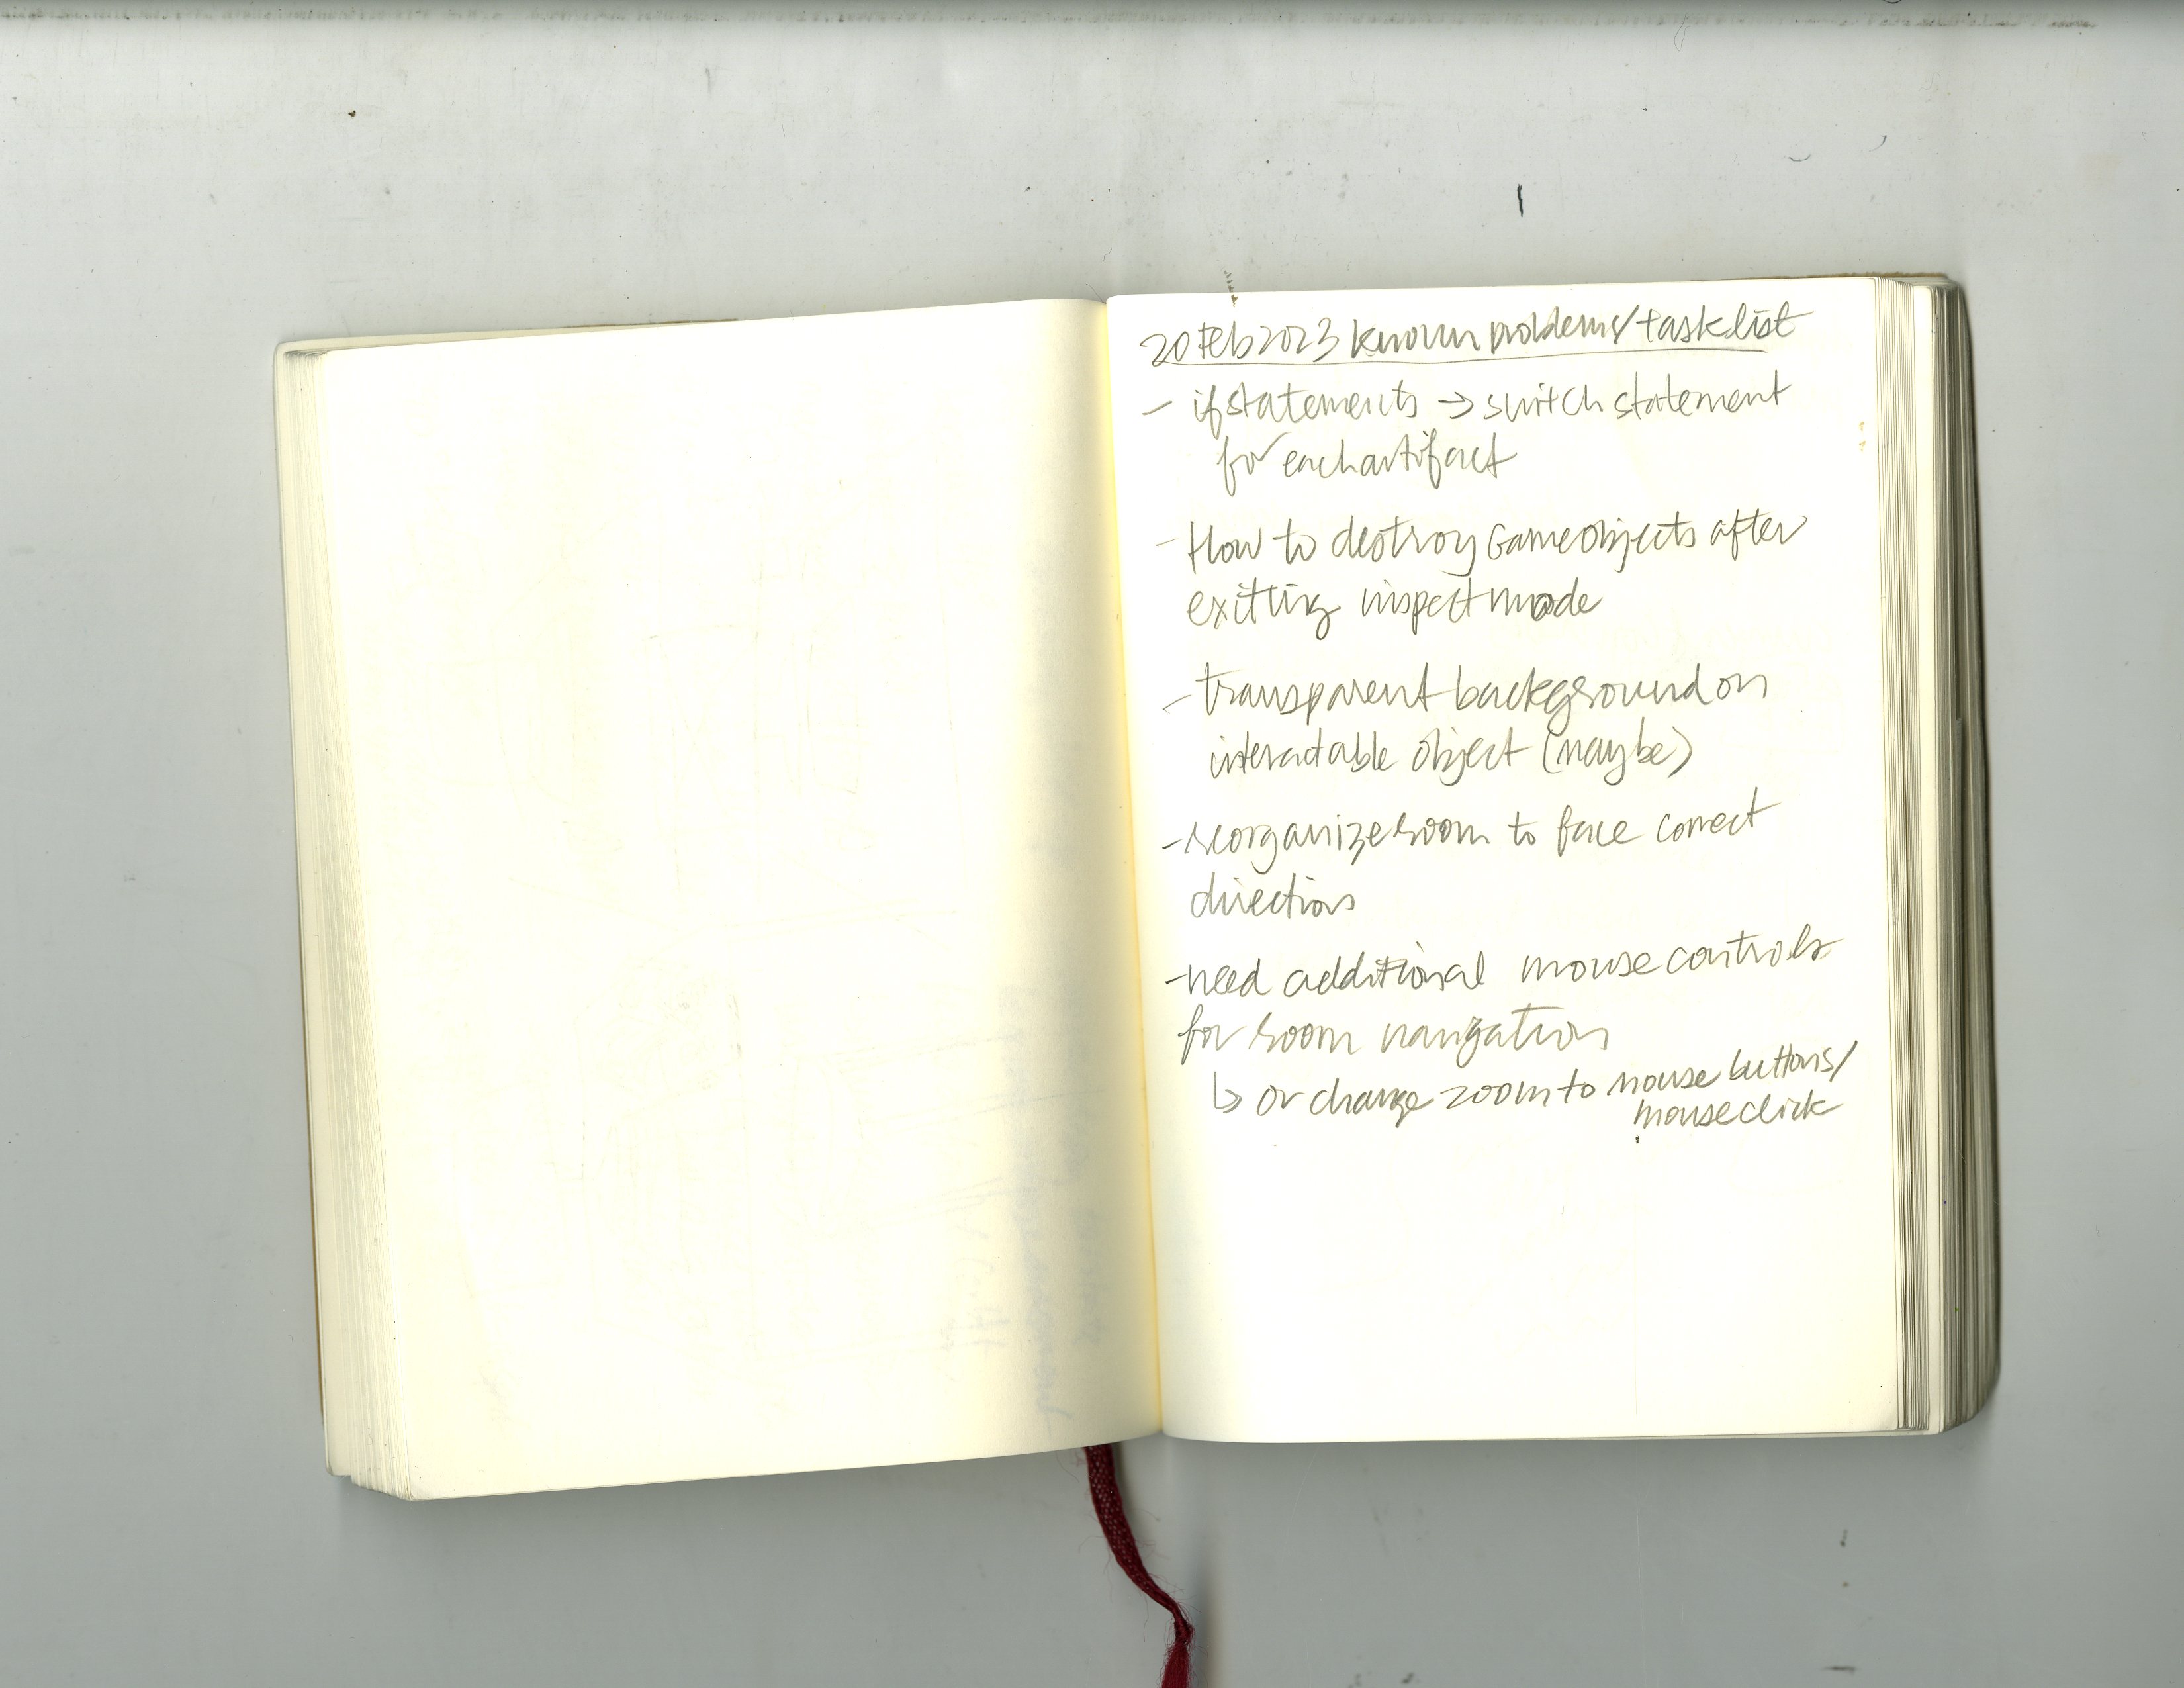 20 Feb 2023 known problems/task list
- if statements → switch statement
for each artifact
- How to destroy GameObjects after
exiting inspect mode
- transparent background on
interactable object (maybe)
- reorganize room to face correct
direction
- need additional mouse controls
for room navigation
↳ or change zoom to mouse buttons/
mouse click